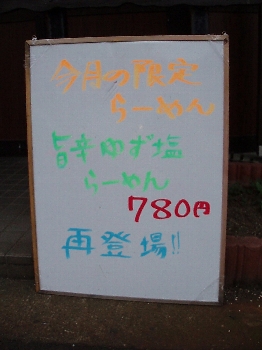 今月の限定
らーめん
旨辛ゆず塩
らーめん
780円
再登場!!